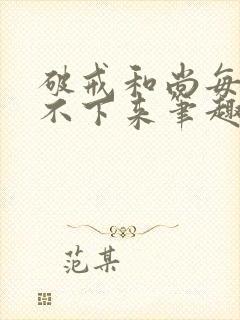 破戒和尚每
不下来笔趣
范某